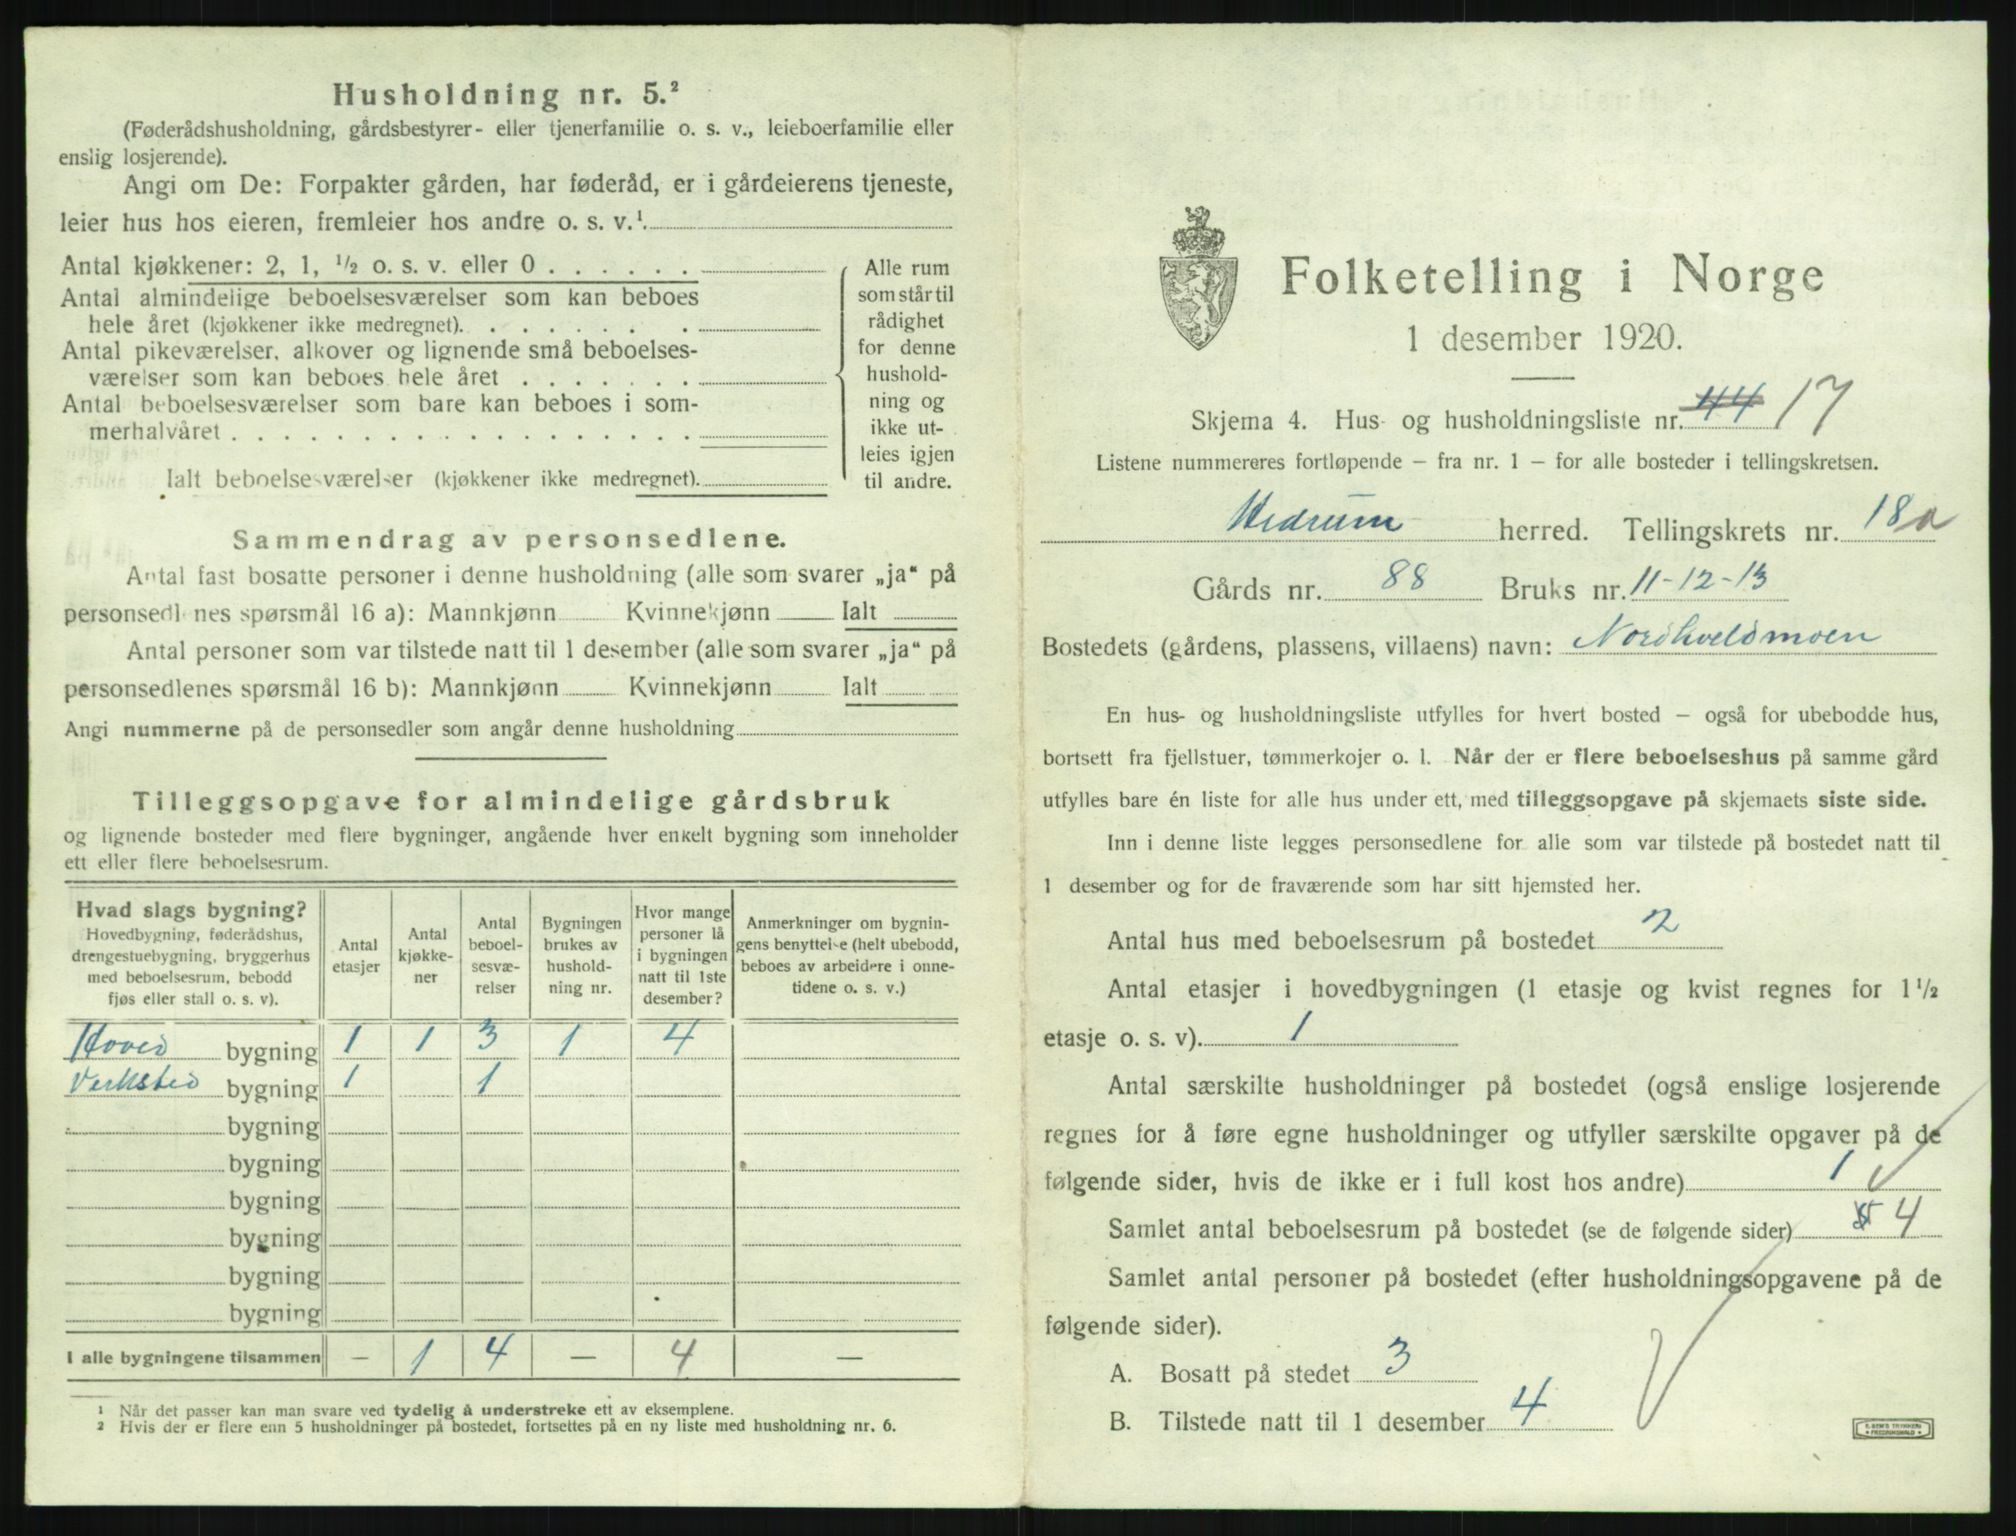 Husholdning nr. 5.²
(Føderådshusholdning, gårdsbestyrer- eller tjenerfamilie o. s. v., leieboerfamilie eller
enslig losjerende).
Angi om De: Forpakter gården, har føderåd, er i gårdeierens tjeneste,
leier hus hos eieren, fremleier hos andre o. s. v.¹.
Antal kjøkkener: 2, 1, ½ o. s. v. eller 0 . . . . . .
Antal almindelige beboelsesværelser som kan beboes
hele året (kjøkkener ikke medregnet). . . . . . . .
Antal pikeværelser, alkover og lignende små beboelses-
værelser som kan beboes hele året . . . . . . .
Antal beboelsesværelser som bare kan beboes i som-
merhalvåret . . . . . . . . . . . . . . . . . .
Ialt beboelsesværelser (kjøkkener ikke medregnet).
Alle rum
som står til
rådighet
for denne
hushold-
ning og
ikke ut-
leies igjen
til andre.
Sammendrag av personsedlene.
Antal fast bosatte personer i denne husholdning (alle som svarer „ja“ på
personsedlenes spørsmål 16 a): Mannkjønn Kvinnekjønn Ialt
Antal personer som var tilstede natt til 1 desember (alle som svarer „ja“ på
personsedlenes spørsmål 16 b): Mannkjønn Kvinnekjønn Ialt
Angi nummerne på de personsedler som angår denne husholdning
Tilleggsopgave for almindelige gårdsbruk
og lignende bosteder med flere bygninger, angående hver enkelt bygning som inneholder
ett eller flere beboelsesrum.
Hvad slags bygning?
Hovedbygning, føderådshus,
drengestuebygning, bryggerhus
med beboelsesrum, bebodd
fjøs eller stall o. s. v).
Antal
etasjer
Antal
kjøkke-
ner
Antal
beboel-
sesvæ-
relser
Bygningen
brukes av
hushold-
ning nr.
Hvor mange
personer lå
i bygningen
natt til 1ste
desember?
Anmerkninger om bygnin-
gens benyttelse (helt ubebodd,
beboes av arbeidere i onne-
tidene o. s. v.)
Hoved bygning 1 1 3 1 4
Verksted bygning 1 1
bygning
bygning
bygning
bygning
bygning
bygning
I alle bygningene tilsammen — 1 4 — 4 —
¹ Når det passer kan man svare ved tydelig å understreke ett av eksemplene.
² Hvis der er flere enn 5 husholdninger på bostedet, fortsettes på en ny liste med husholdning nr. 6.
Folketelling i Norge
1 desember 1920.
Skjema 4. Hus- og husholdningsliste nr. 44 17
Listene nummereres fortløpende – fra nr. 1 – for alle bosteder i tellingskretsen.
Hedrum herred. Tellingskrets nr. 18a
Gårds nr. 88 Bruks nr. 11-12-13
Bostedets (gårdens, plassens, villaens) navn: Nordkveldmoen
En hus- og husholdningsliste utfylles for hvert bosted – også for ubebodde hus,
bortsett fra fjellstuer, tømmerkojer o. l. Når der er flere beboelseshus på samme gård
utfylles bare én liste for alle hus under ett, med tilleggsopgave på skjemaets siste side.
Inn i denne liste legges personsedlene for alle som var tilstede på bostedet natt til
1 desember og for de fraværende som har sitt hjemsted her.
Antal hus med beboelsesrum på bostedet 2
Antal etasjer i hovedbygningen (1 etasje og kvist regnes for 1 ½
etasje o. s. v). 1
Antal særskilte husholdninger på bostedet (også enslige losjerende
regnes for å føre egne husholdninger og utfyller særskilte opgaver på de
følgende sider, hvis de ikke er i full kost hos andre) 1
Samlet antal beboelsesrum på bostedet (se de følgende sider) 4
Samlet antal personer på bostedet (efter husholdningsopgavene på de
følgende sider).
A. Bosatt på stedet 3
B. Tilstede natt til 1 desember 4